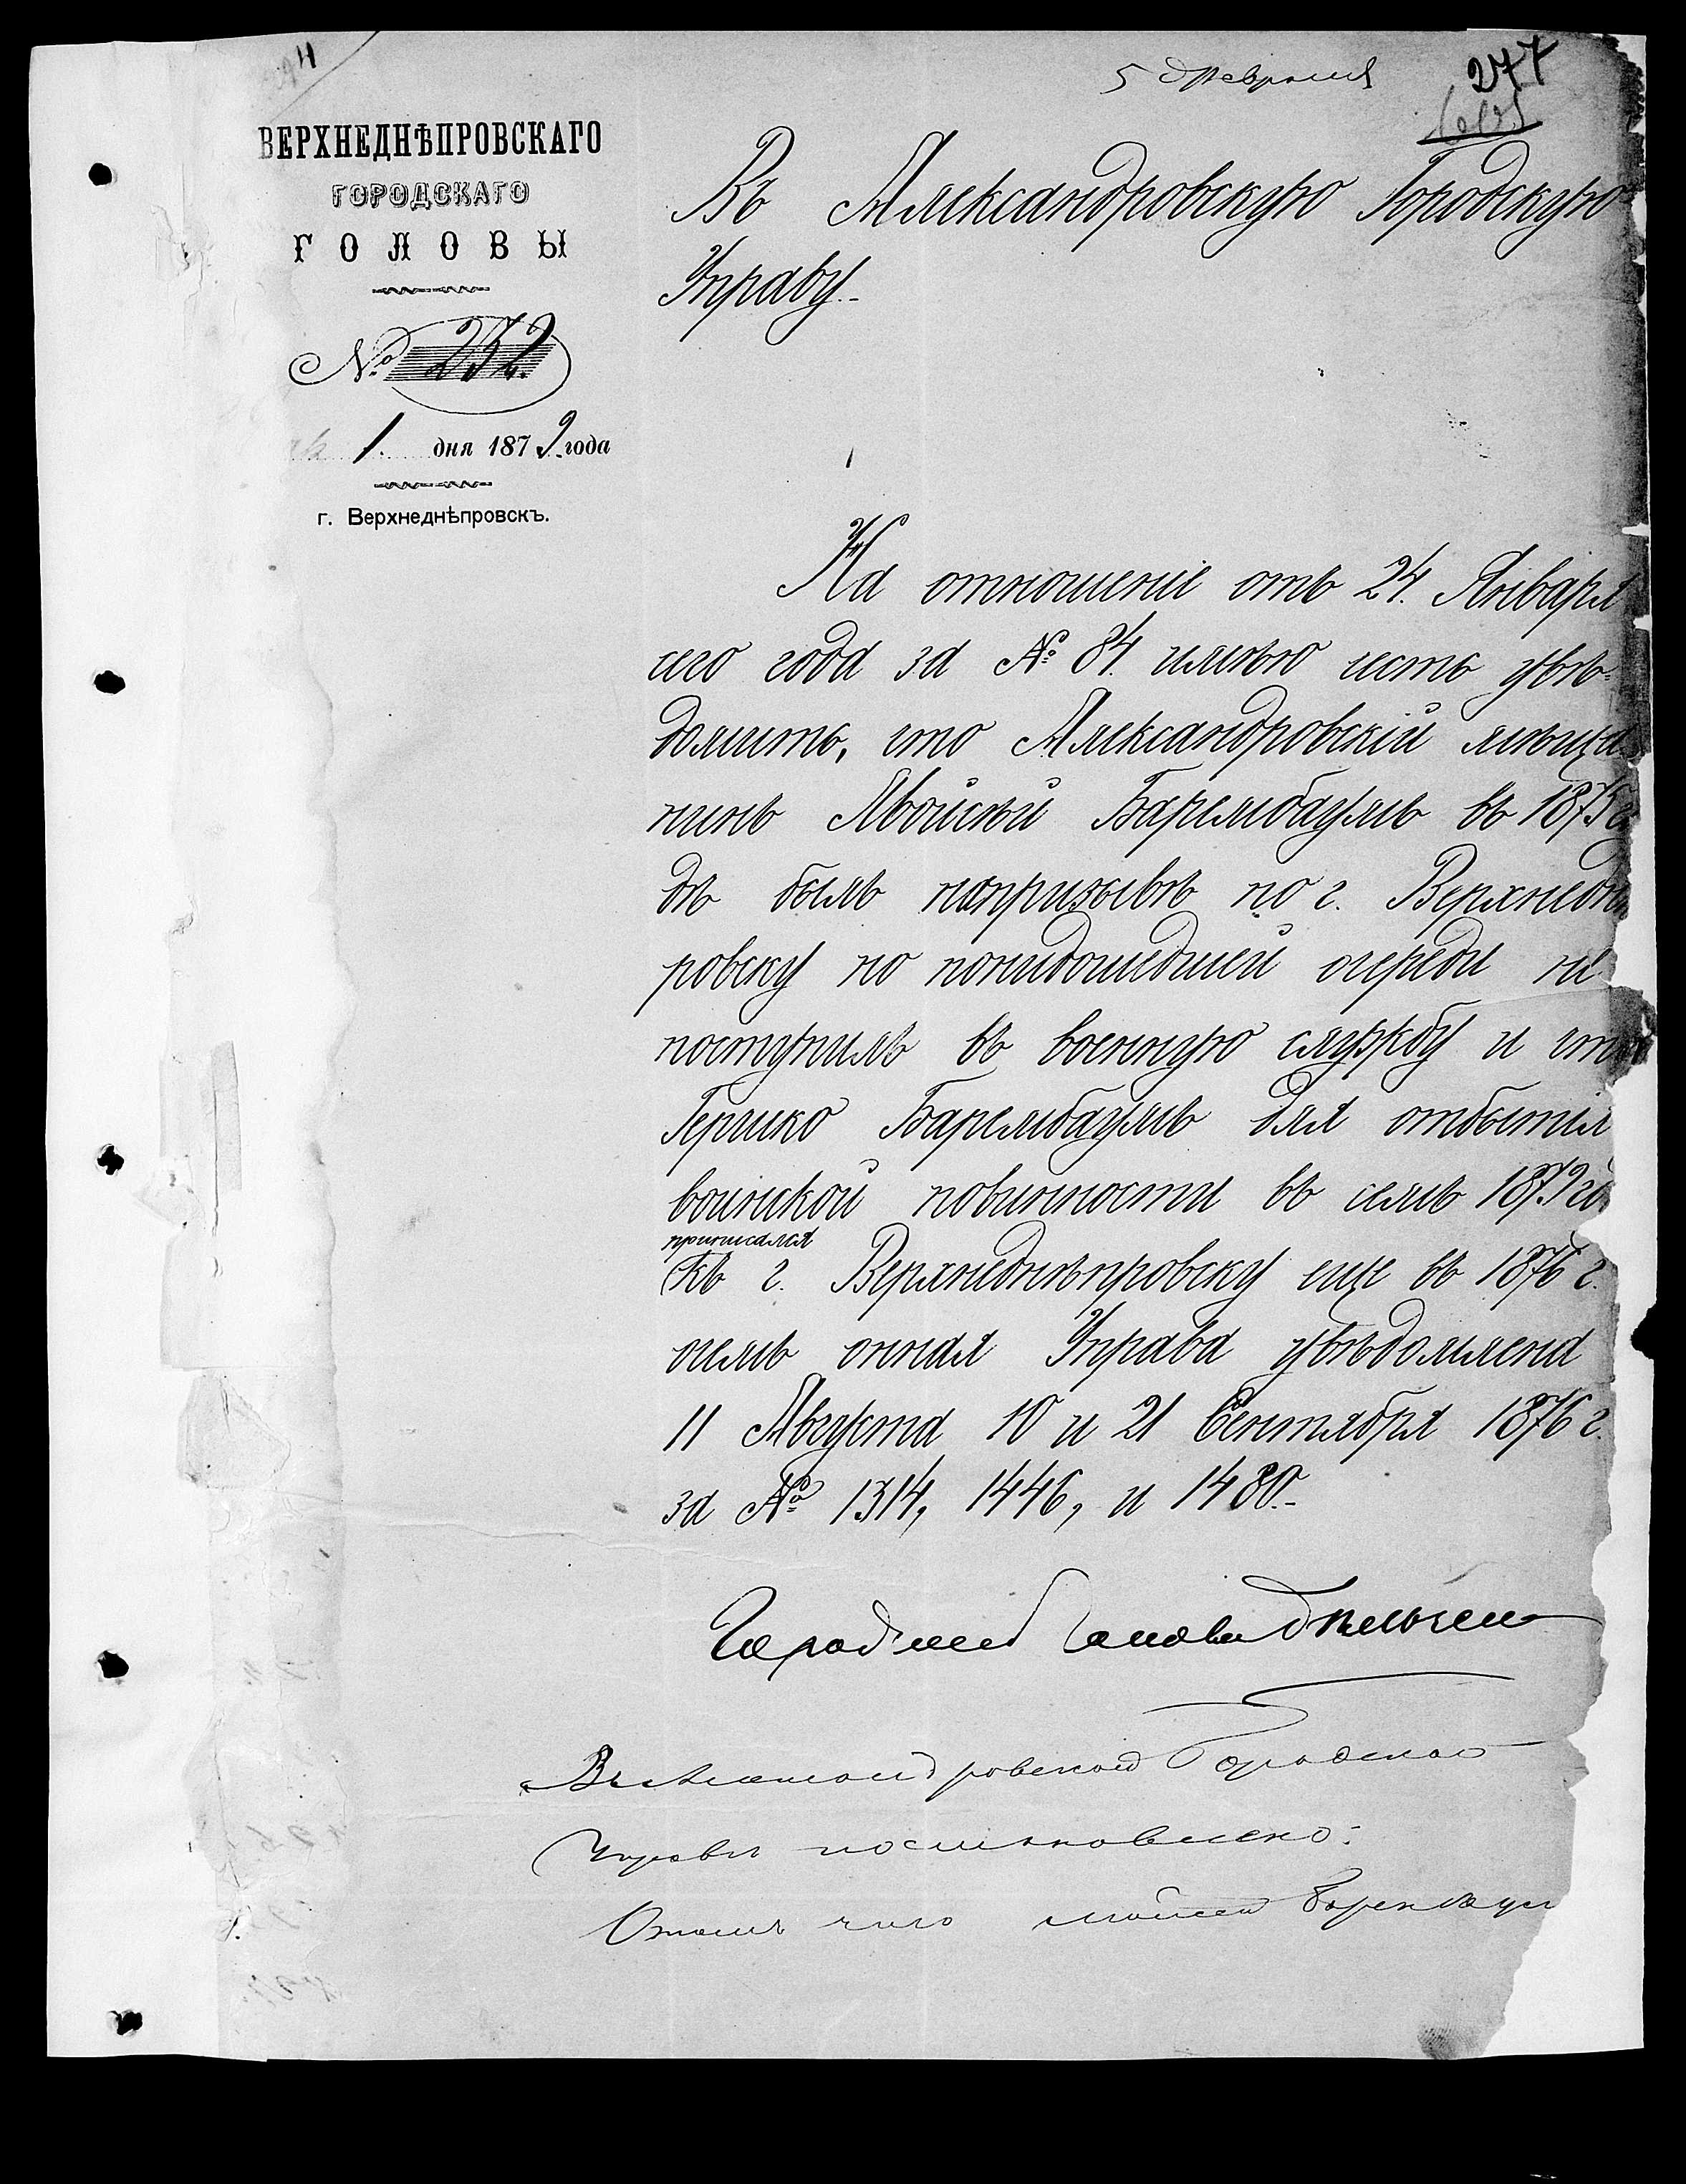 5 Февраля
277
ВЕРХНЕДНѢПРОВСКАГО
ГОРОДСКАГО
ГОЛОВЫ
№ 252.
1. дня 1879 года
г. Верхнеднѣпровскъ.
Въ Александровскую Городскую
Управу.-
На отношеніе отъ 24. Января
сего года за № 84. имѣю честь увѣ=
домить, что Александровскій мѣща
нинъ Мойсей Барембаумъ въ 1875 г
дѣ былъ на призывѣ по г. Верхнедн
ровску но понидошедшей очереди не
поступилъ въ военную службу и что
Гершко Барембаумъ для отбытія
воинской повинности въ семъ 1879 го
приписался
къ г. Верхнеднѣпровску еще въ 1876 г.
чемъ онная Управа увѣдомлена
11 Августа 10 и 21 Сентября 1876 г.
за № 1314, 1446, и 1480.-
Городской Голова
Въ Александровской Городской
Управѣ постановлено:
Мойсей Баренбаум